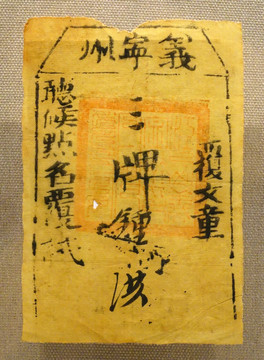 義寧州
覆文童
三牌鍾洪
聽候點名覆試